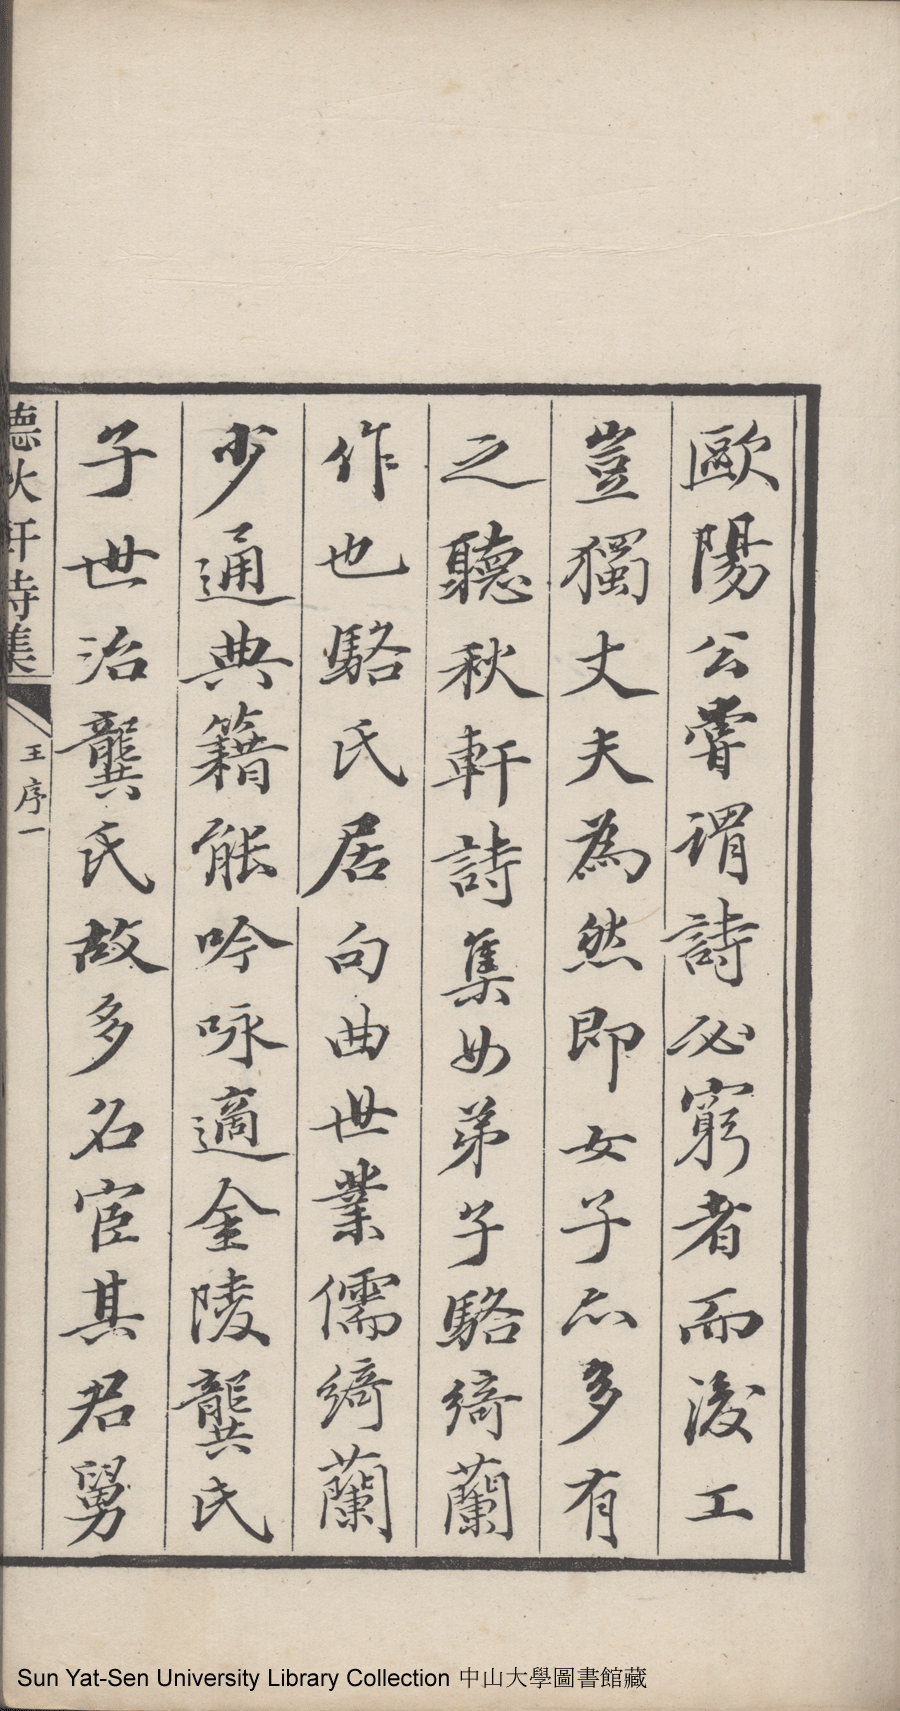 歐陽公嘗謂詩必窮者而後工
豈獨丈夫為然即女子亦多有
之聽秋軒詩集女弟子駱綺蘭
作也駱氏居句曲世業儒綺蘭
少通典籍能吟咏適金陵龔氏
子世治龔氏故多名宦其君舅
聽秋軒詩集
王序一
Sun Yat-Sen University Library Collection 中山大學圖書館藏